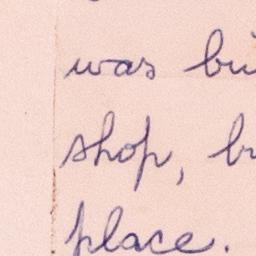 was
shop,
place.